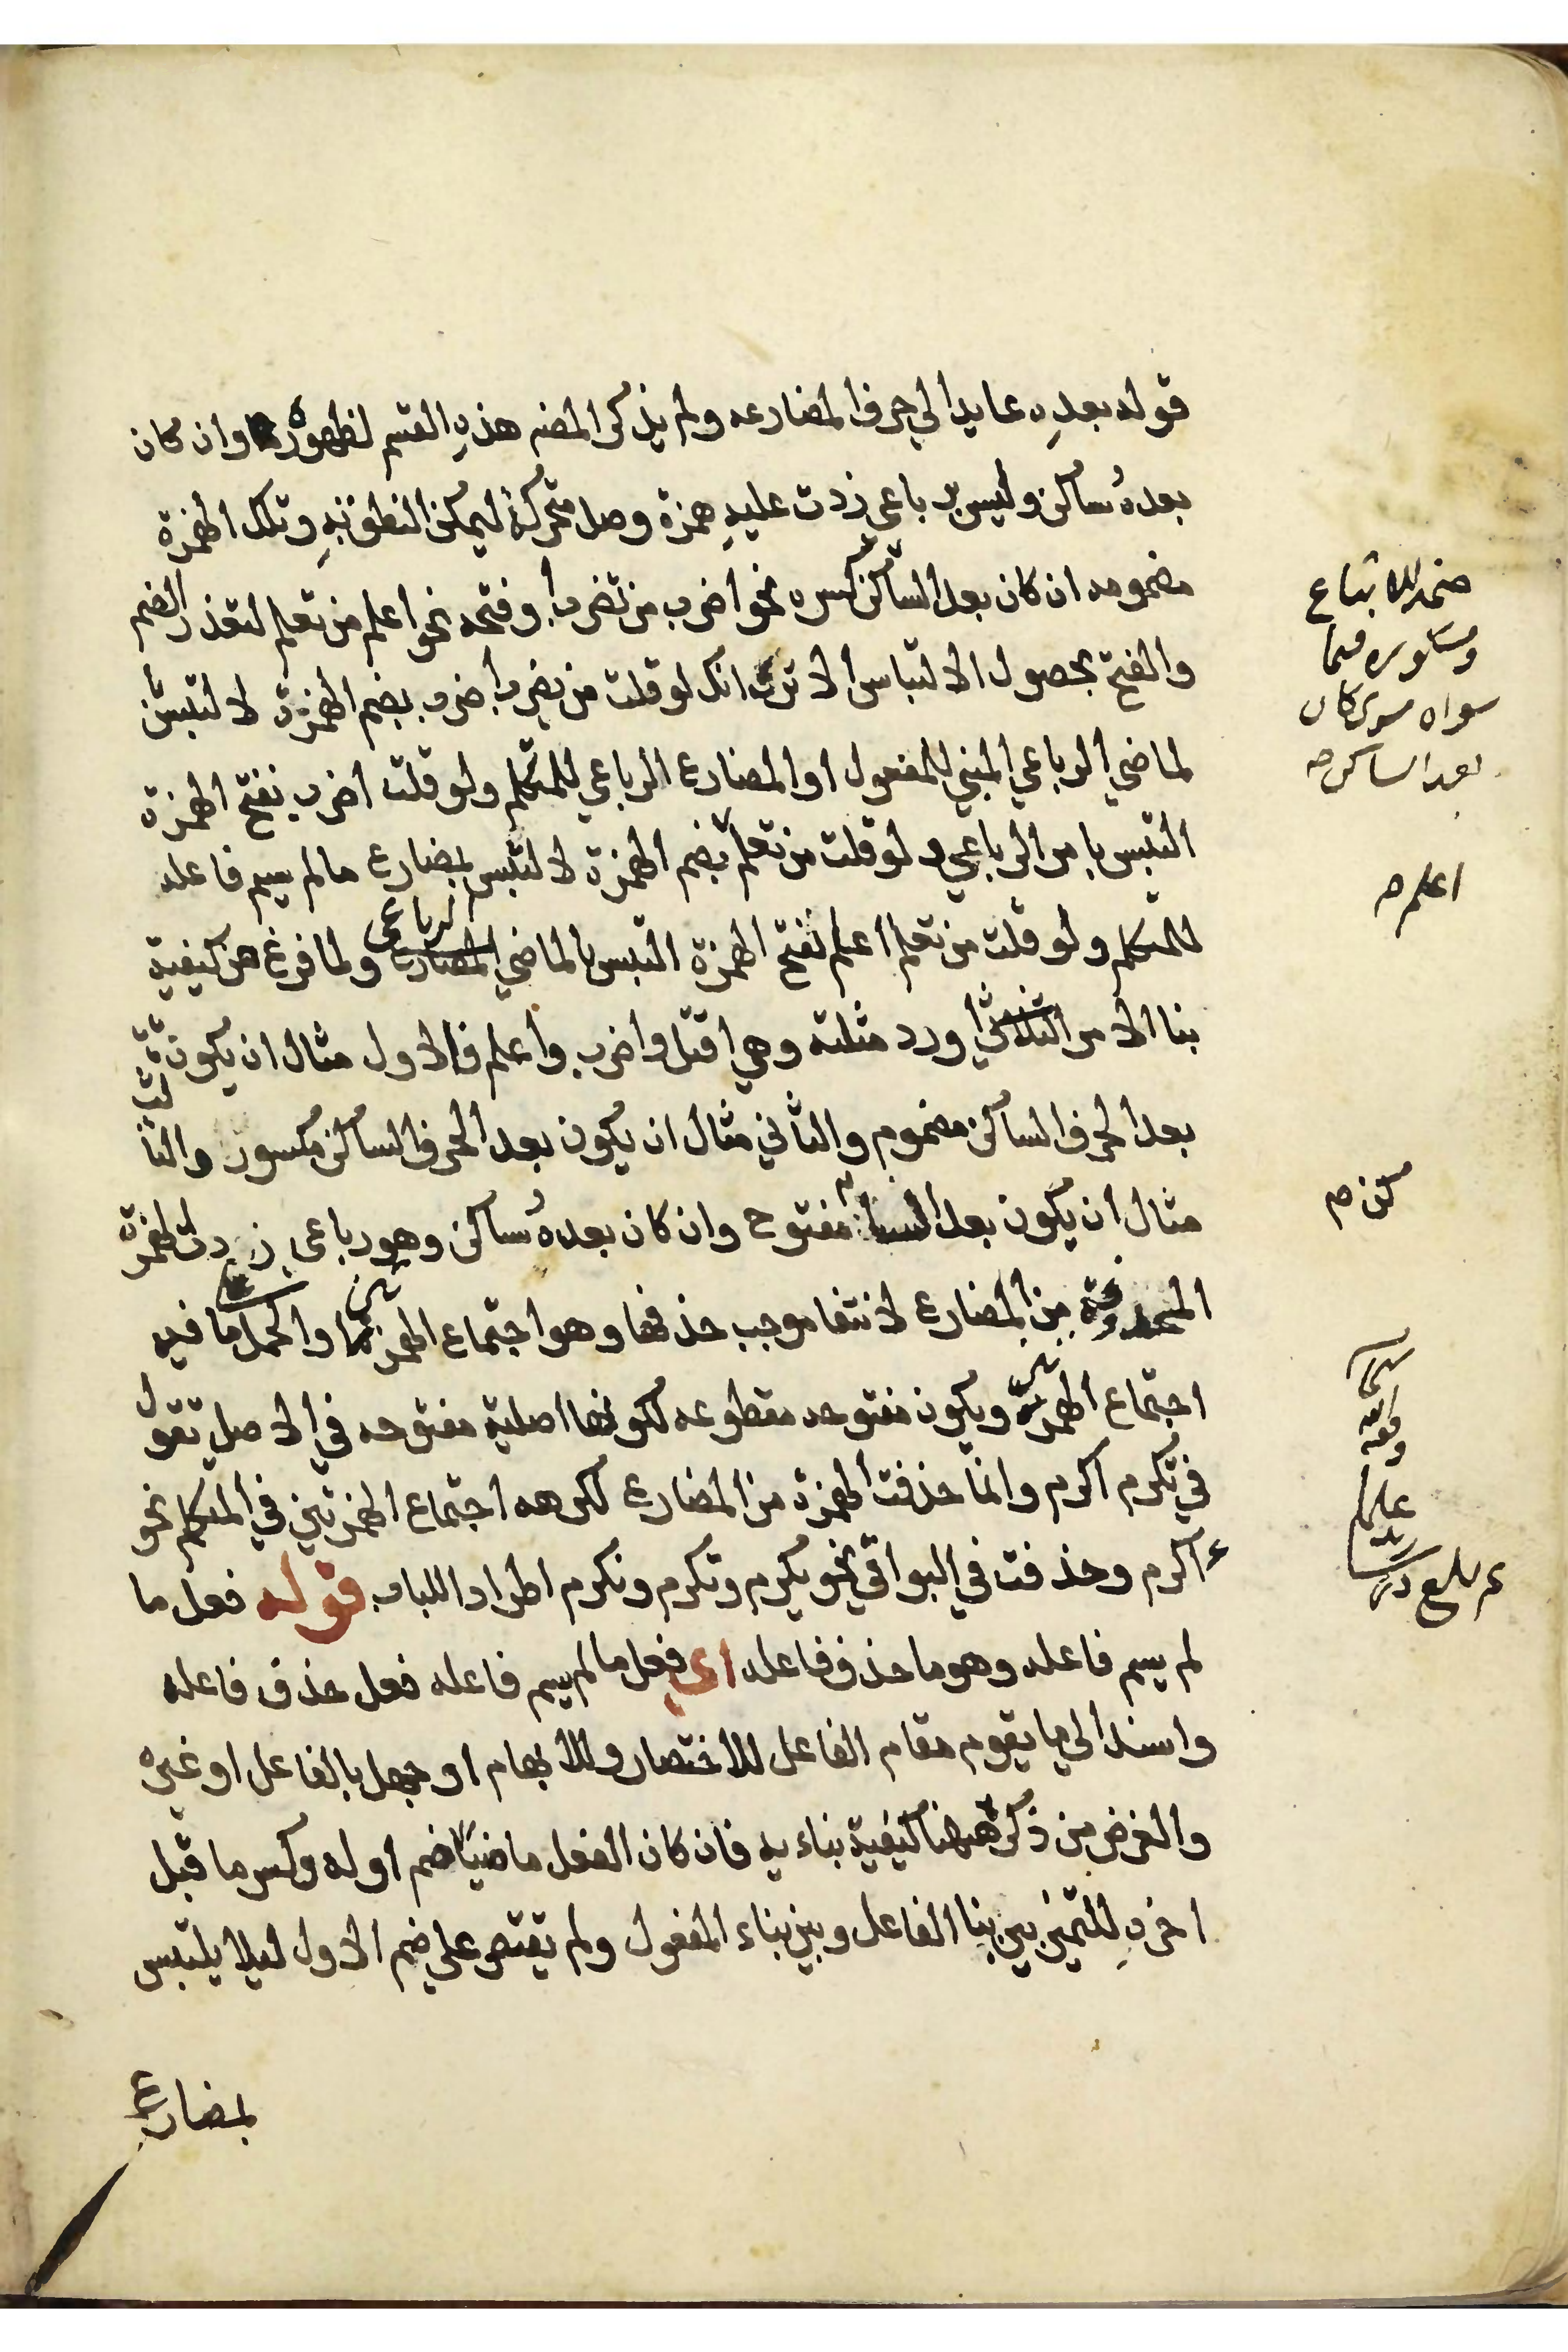 قوله بعده عايدا الي حرف المضارعه ولم يذكر المصنه هذه القسم لظهوره وان كان
بعده ساكن وليس برباعي زدت عليه همزة وصل متحركة ليمكن النطق به وتلك الهمزة
مضمومه ان كان بعد الساكن كسره نحو اضرب من تضرب او فتحه نحو اعلم من تعلم لتعذر الضم
والفتح بحصول الالتباس الا ترى انك لو قلت من تضرب اضرب بضم الهمزة لالتبس
لماضي الرباعي المبني للمفعول او المضارع الرباعي للمتكلم ولو قلت اضرب بفتح الهمزة
التبس بامر الرباعي ولو قلت من تعلم بضم الهمزة لالتبس بمضارع مالم يسم فاعله
للمتكلم ولو قلت من تعلم اعلم بفتح الهمزة التبس بالماضي الرباعي ولما فرغ من كيفية
بنا الامر الثلاثي اورد مثلته وهي اقتل واضرب واعلم فالاول مثال ان يكون
بعد الحرف الساكن مضموم والثاني مثال ان يكون بعد الحرف الساكن مكسور والثالث
مثال ان يكون بعد الساكن مفتوح وان كان بعده ساكن وهو رباعي زيدت الهمزة
المحذوفة من المضارع لانتفا موجب حذفها وهو اجتماع الهمزتين والحمل ما فيه
اجتماع الهمزتين ويكون مفتوحه مقطوعه لكونها اصلية مفتوحه في الاصل تقول
في تكرم اكرم وانما حذفت الهمزة من المضارع لكرهه اجتماع الهمزتين في المتكلم نحو
ءاكرم وحذفت في البواقي نحو يكرم وتكرم ونكرم اطرادا للباب قوله فعل ما
لم يسم فاعله وهو ما حذف فاعله اي فعل مالم يسم فاعله فعل حذف فاعله
واسند الي ما يقوم مقام الفاعل للاختصار وللابهام او جهل بالفاعل او غيره
والغرض من ذكره ههنا كيفية بناءيه فان كان الفعل ماضيا ضم اوله وكسر ما قبل
اخره للتميز بين بنا الفاعل وبين بناء المفعول ولم يقتصر على ضم الاول ليلا يلتبس
بمضارع
ضمه للاتباع
ومكسوره فيما
سواه سوى كان
بعد الساكن
اعلم